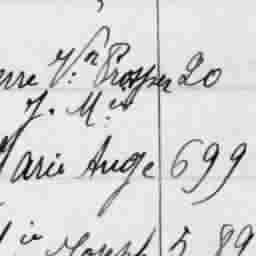 erre Vn Prosper 20
J. Mie
Marie Ange 699
Joseph 5 89